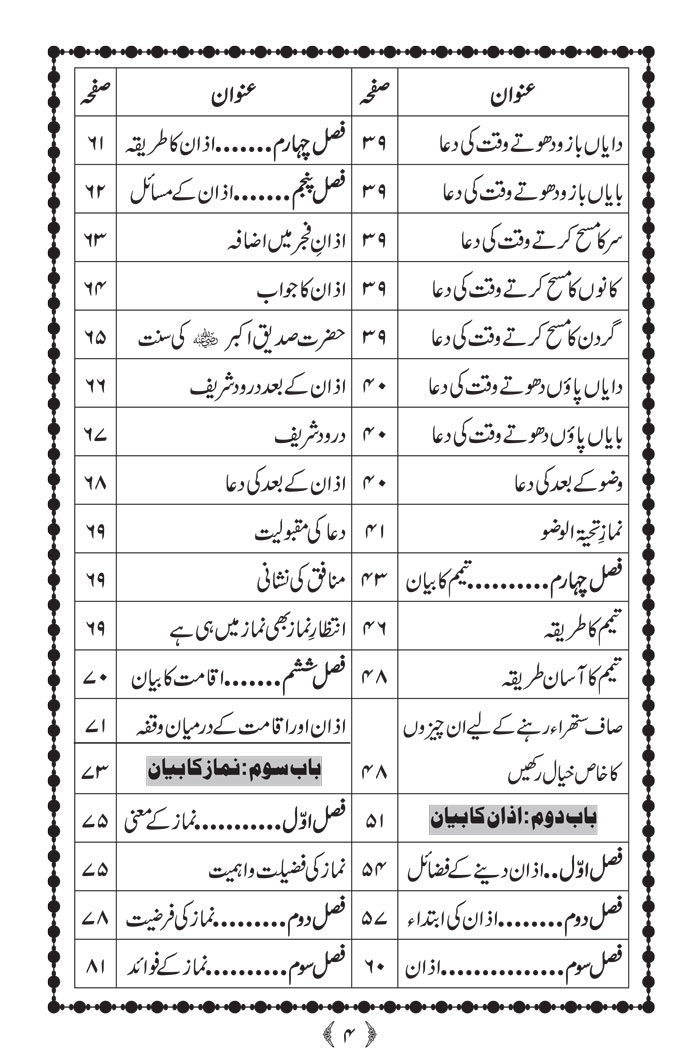 عنوان صفحہ
دایاں بازو دھوتے وقت کی دعا ۳۹
بایاں بازو دھوتے وقت کی دعا ۳۹
سر کا مسح کرتے وقت کی دعا ۳۹
کانوں کا مسح کرتے وقت کی دعا ۳۹
گردن کا مسح کرتے وقت کی دعا ۳۹
دایاں پاؤں دھوتے وقت کی دعا ۴۰
بایاں پاؤں دھوتے وقت کی دعا ۴۰
وضو کے بعد کی دعا ۴۰
نمازِ تحیۃ الوضو ۴۱
فصل چہارم..........تیمم کا بیان ۴۳
تیمم کا طریقہ ۴۶
تیمم کا آسان طریقہ ۴۸
صاف ستھراء رہنے کے لیے ان چیزوں
کا خاص خیال رکھیں ۴۸
باب دوم: اذان کا بیان ۵۱
فصل اوّل..اذان دینے کے فضائل ۵۴
فصل دوم........اذان کی ابتداء ۵۷
فصل سوم...............اذان ۶۰
عنوان صفحہ
فصل چہارم.......اذان کا طریقہ ۶۱
فصل پنجم.......اذان کے مسائل ۶۲
اذانِ فجر میں اضافہ ۶۳
اذان کا جواب ۶۴
حضرت صدیق اکبر رضی اللہ عنہ کی سنت ۶۵
اذان کے بعد درود شریف ۶۶
درود شریف ۶۷
اذان کے بعد کی دعا ۶۸
دعا کی مقبولیت ۶۹
منافق کی نشانی ۶۹
انتظارِ نماز بھی نماز میں ہی ہے ۶۹
فصل ششم.......اقامت کا بیان ۷۰
اذان اور اقامت کے درمیان وقفہ ۷۱
باب سوم: نماز کا بیان ۷۳
فصل اوّل...........نماز کے معنی ۷۵
نماز کی فضیلت و اہمیت ۷۵
فصل دوم.........نماز کی فرضیت ۷۸
فصل سوم..........نماز کے فوائد ۸۱
﴿ ۴ ﴾